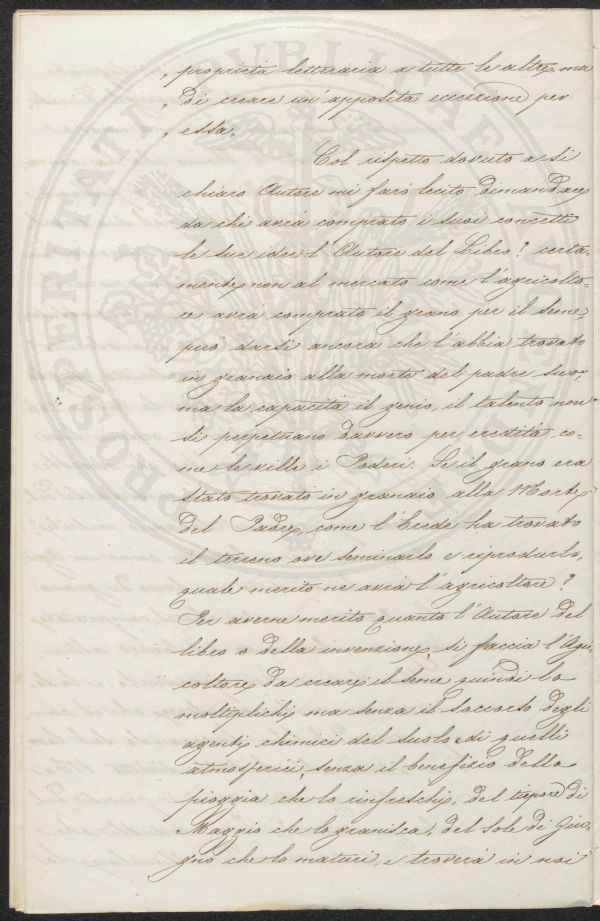 „ proprietà letteraria a tutte le altre, ma
„ di creare un' apposita eccezione per
„ essa.
Col rispetto dovuto a sì
chiaro Autore mi farò lecito dimandare
da chi avrà comprato i suoi concetti
le sue idee l'Autore del Libro? certa
mente, non al mercato come l'agricolto-
re avrà comprato il grano per il seme;
può darsi ancora che l'abbia trovato
in granaio alla morte del padre suo,
ma la capacità il genio, il talento non
si perpetuano davvero per eredità, co-
me le ville i Poderi. Se il grano era
stato trovato in granaio alla Morte
del Padre, come l'Erede ha trovato
il terreno ove seminarlo e riprodurlo,
quale merito ne avrà l'agricoltore?
Per averne merito quanto l'Autore del
libro o della invenzione, si faccia l'Agri-
coltore, da creare il seme, quindi lo
moltiplichi, ma senza il soccorso degli
agenti chimici del suolo, e di quelli
atmosferici, senza il benefizio della
pioggia che lo rinfreschi, del tepore di
Maggio che lo granisca, del Sole di Giu-
gno che lo maturi, e troverà in noi
PVBLICAE
PROSPERITATI